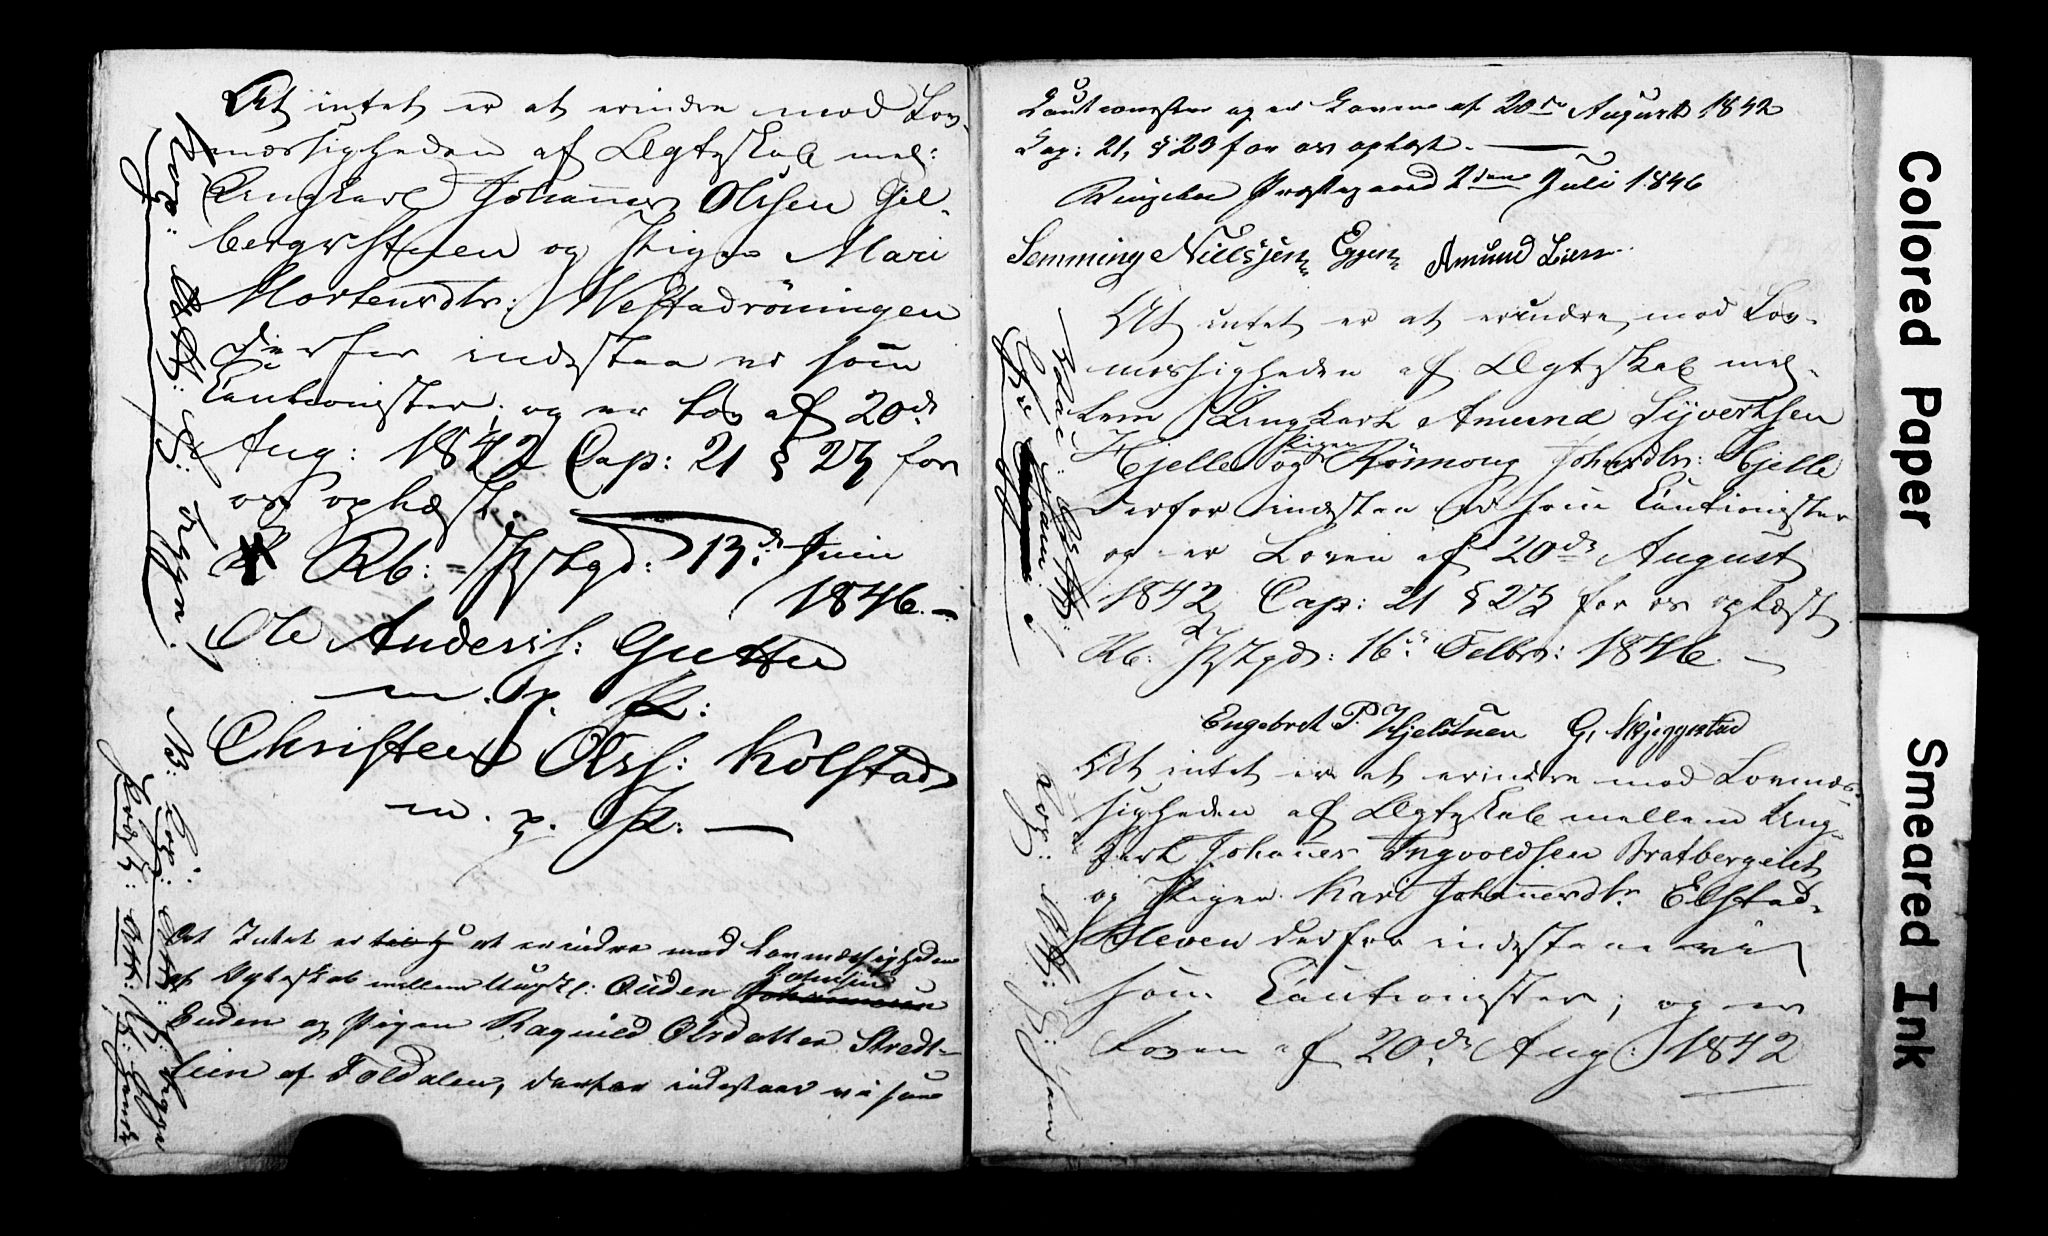 At intet er at erindre mod Lov-
mæssigheden af Ægteskab mel:
Ungkarl Johannes Olssen Gil-
bergsstuen og Pigen Mari
Mortensdtr: Nestadröningen
derfor indestaa vi som
Cautionister og er Lov af 20de
Aug: 1842 Cap: 21 § 23 for
os oplæst.
Rb: Præstgd: 13de Juni
1846. –
Ole Anderss: Gutten
m. p. P:
Christen Olss: Kolstad
m. p. P: –
At Intet er at erindre mod Lovmæssigheden
af Ægteskab mellem Ungk: Ouden Johnsen
Enden og Pigen Ragnild Olsdatter Stredt-
lien af Foldalen, derfor indestaar vi som
Cautionister og er Loven af 20de August 1842
Cap: 21, § 23 for os oplæst. –
Ringeboe Præstegaard 2den Juli 1846
Semming Nielssen Eggen Amund Lien
At intet er at erindre mod Lov-
mæssigheden af Ægteskab mel-
lem Ungkarl Amund Syvertsen
Hjelle og Pigen Rönnoug Johnsdtr: Hjelle
derfor indestaa vi som Cautionister
og er Loven af 20de August
1842 Cap: 21 § 23 for os oplæst
Rb: Præstgd: 16de Febr: 1846. –
Engebret P. Hjelstuen G. Skjeggestad
At intet er at erindre mod Lovmæs-
sigheden af Ægteskab mellem Ung-
karl Johannes Ingvoldsen Bratbergeiet
og Pigen Kari Johannesdtr. Elstad-
kleven derfor indestaae vi
som Cautionister; og er
Loven af 20de Aug: 1842
Colored Paper
Smeared Ink